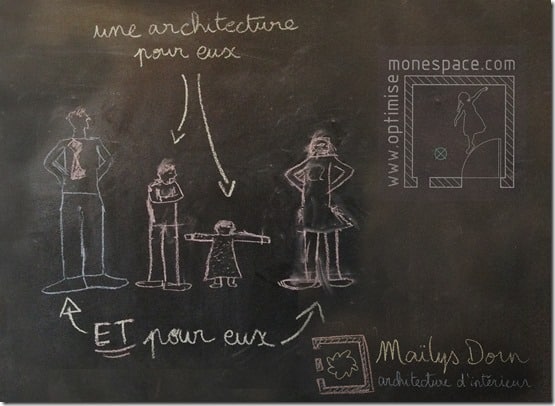 une architecture
pour eux
www.optimise
monespace.com
ET pour eux
Maïlys Dorn
architecture d'intérieur